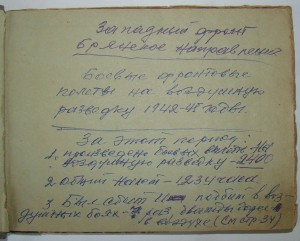 Западный фронт
Брянское направление
Боевые фронтовые
полёты на воздушную
разведку 1942-45 годы.
За этот период:
1. произведено боевых
воздушную разведку - 
2. общий налёт - 1234 часа
3. Был сбит подбит в воз-
душных боях - раз, дважды горел
в воздухе (См стр 34)